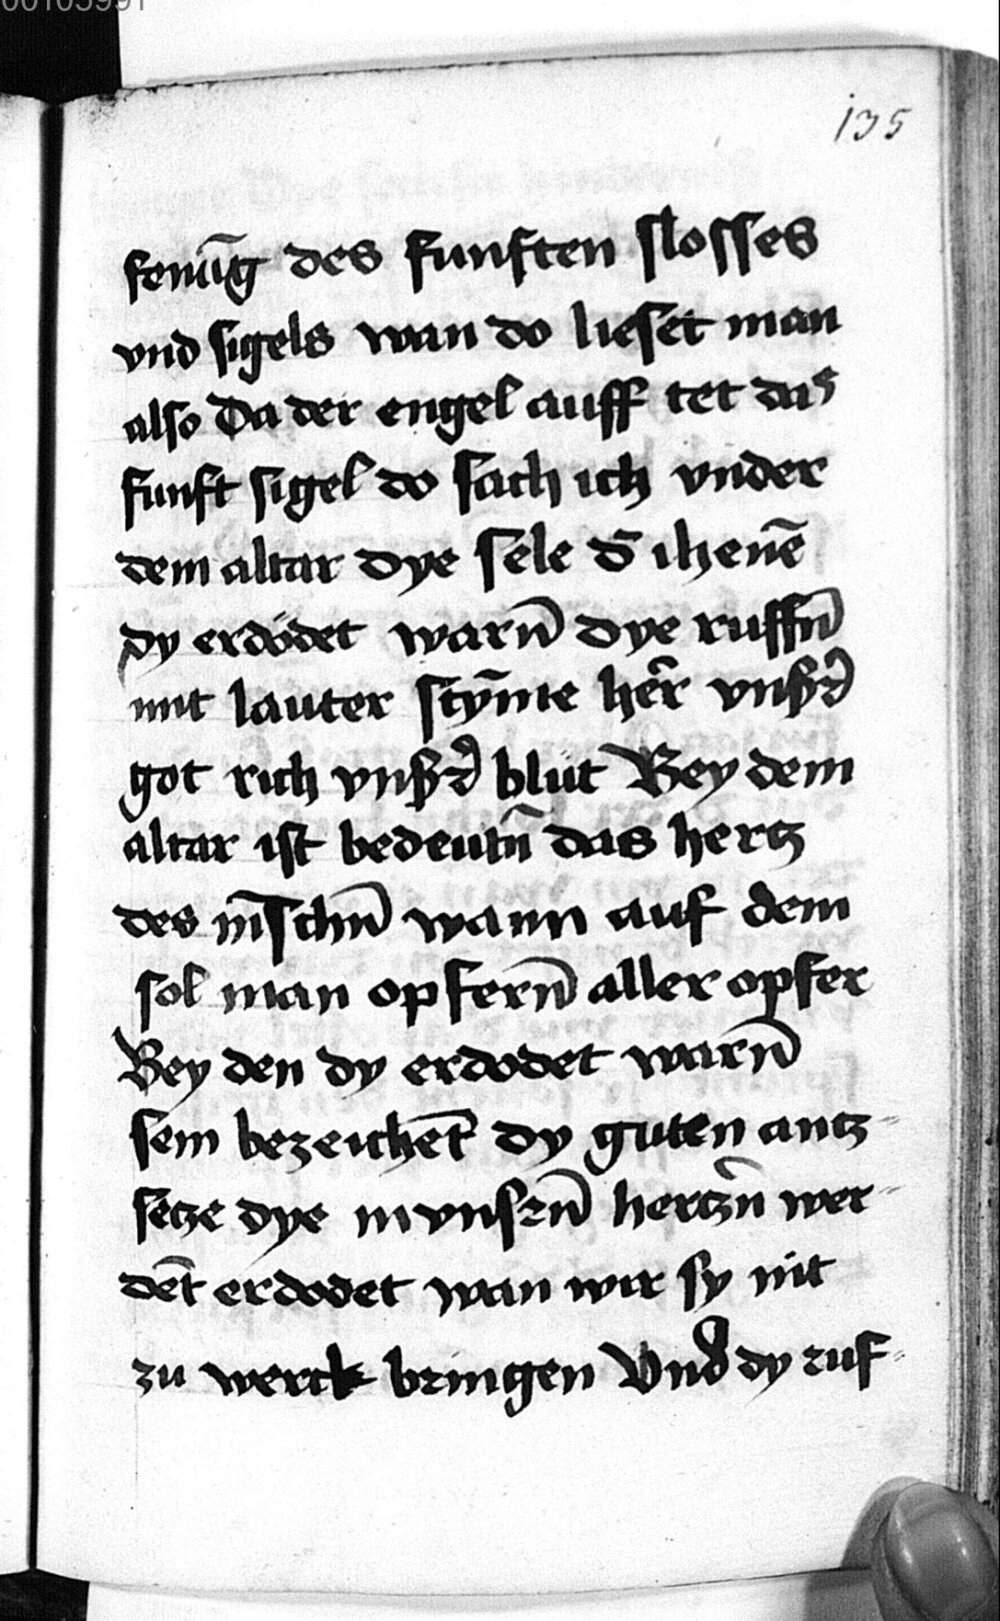 00105991
135
fenūg des funften slosses
vnd sigels wan do lieset man
also Da der engel auff tet das
funft sigel do sach ich vnder
dem altar dye sele d᷑ ihenē
dy erdödet warn̄ dye ruffn̄
mit lauter stȳme her̄ vnßꝺ᷑
got rich vnßꝺ᷑ blut Bey dem
altar ist bedeutn̄ das hertz
des m̄schn̄ wann auf dem
sol man opfern̄ aller opfer
Bey den dy erdodet warn̄
sein bezeichet̄ dy guten antz⸗
setze dye in vnsrn̄ hertzn̄ wer⸗
det̄ erdodet wan wir sy nit
zu werck bringen Vnd dy ruf⸗